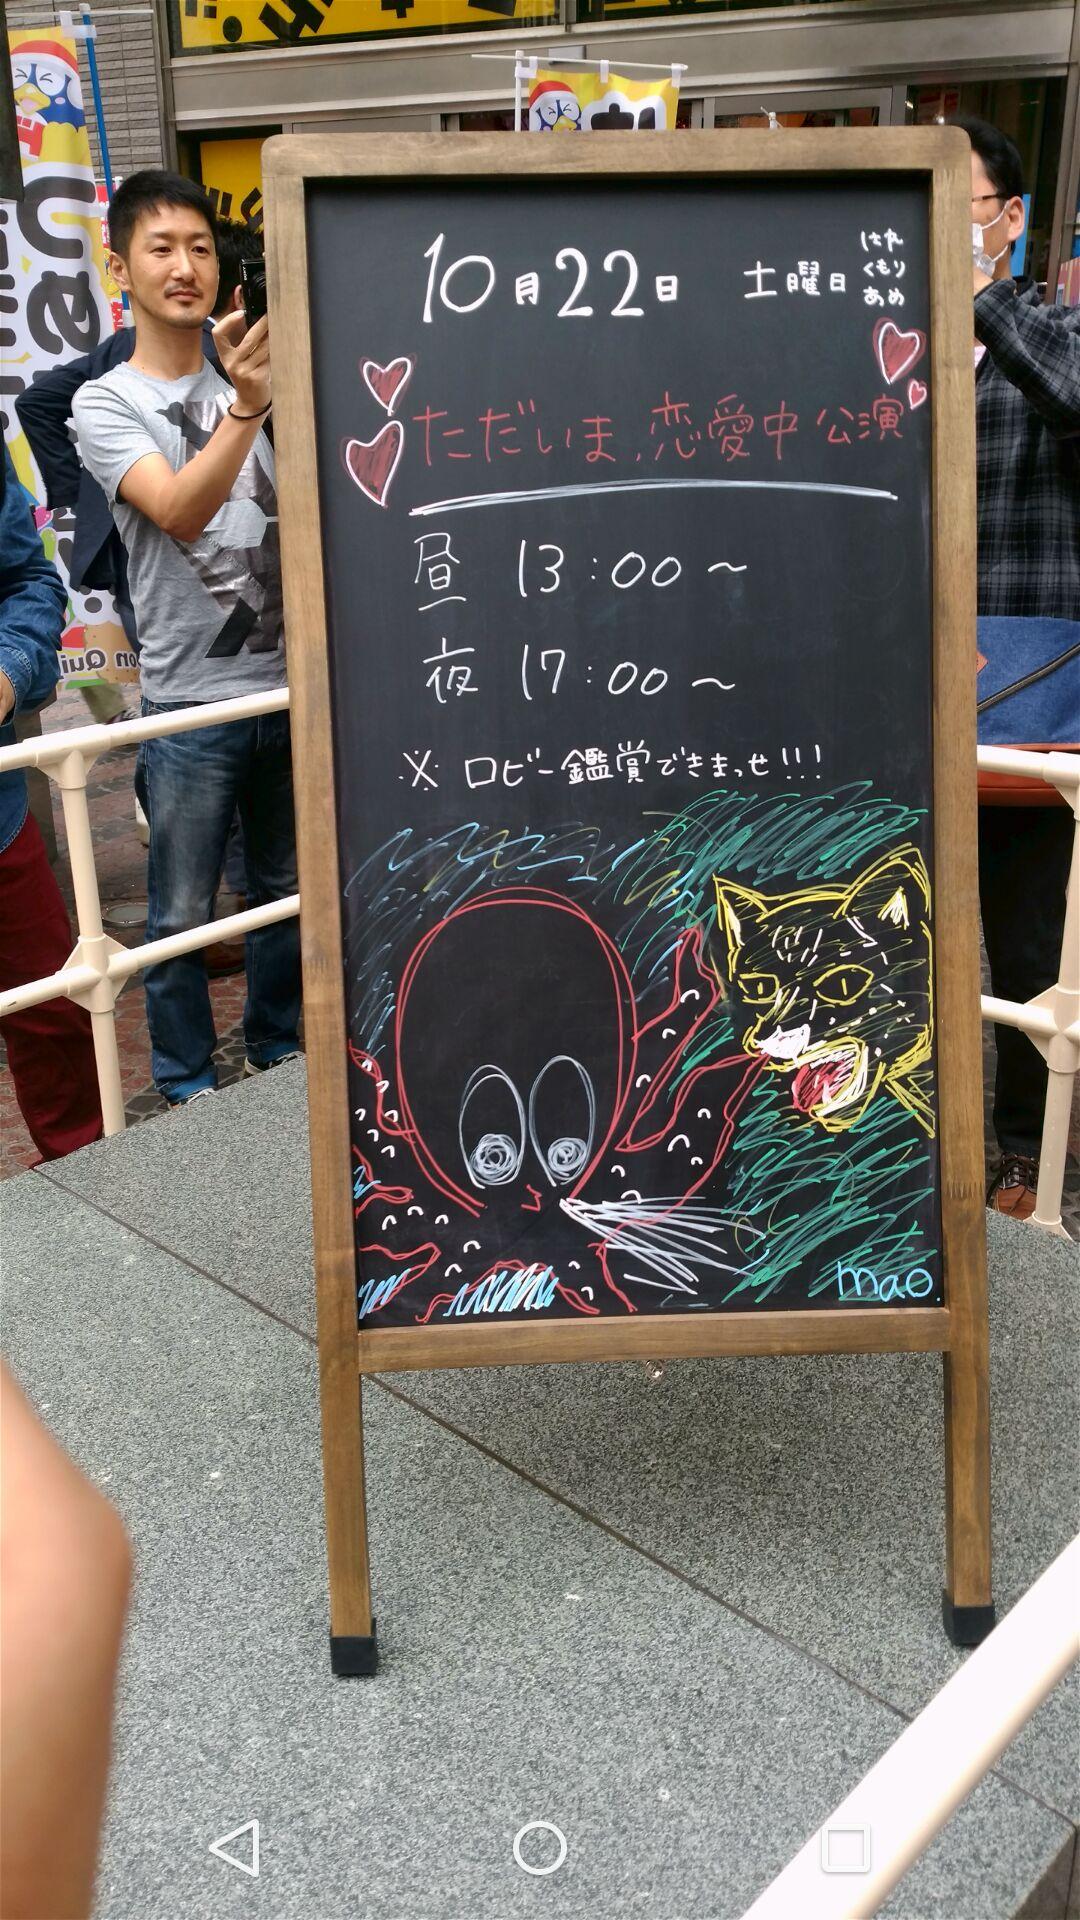 10月22日 土曜日
はれ
くもり
あめ
ただいま、恋愛中 公演
昼 13:00～
夜 17:00～
※ ロビー鑑賞できまっせ!!!
mao.
SONY